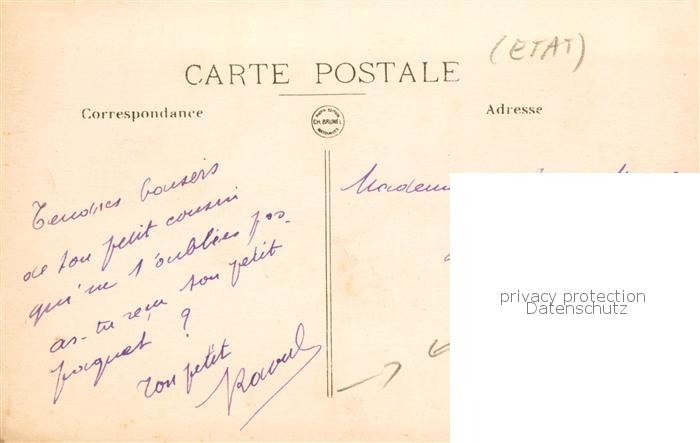 (ETAT)
CARTE POSTALE
Correspondance
Adresse
CH. BRUNEL
Tendres baisers
de ton petit cousin
qui ne t'oublies pas.
as-tu reçu ton petit
paquet ?
ton petit
Raoul
privacy protection
Datenschutz